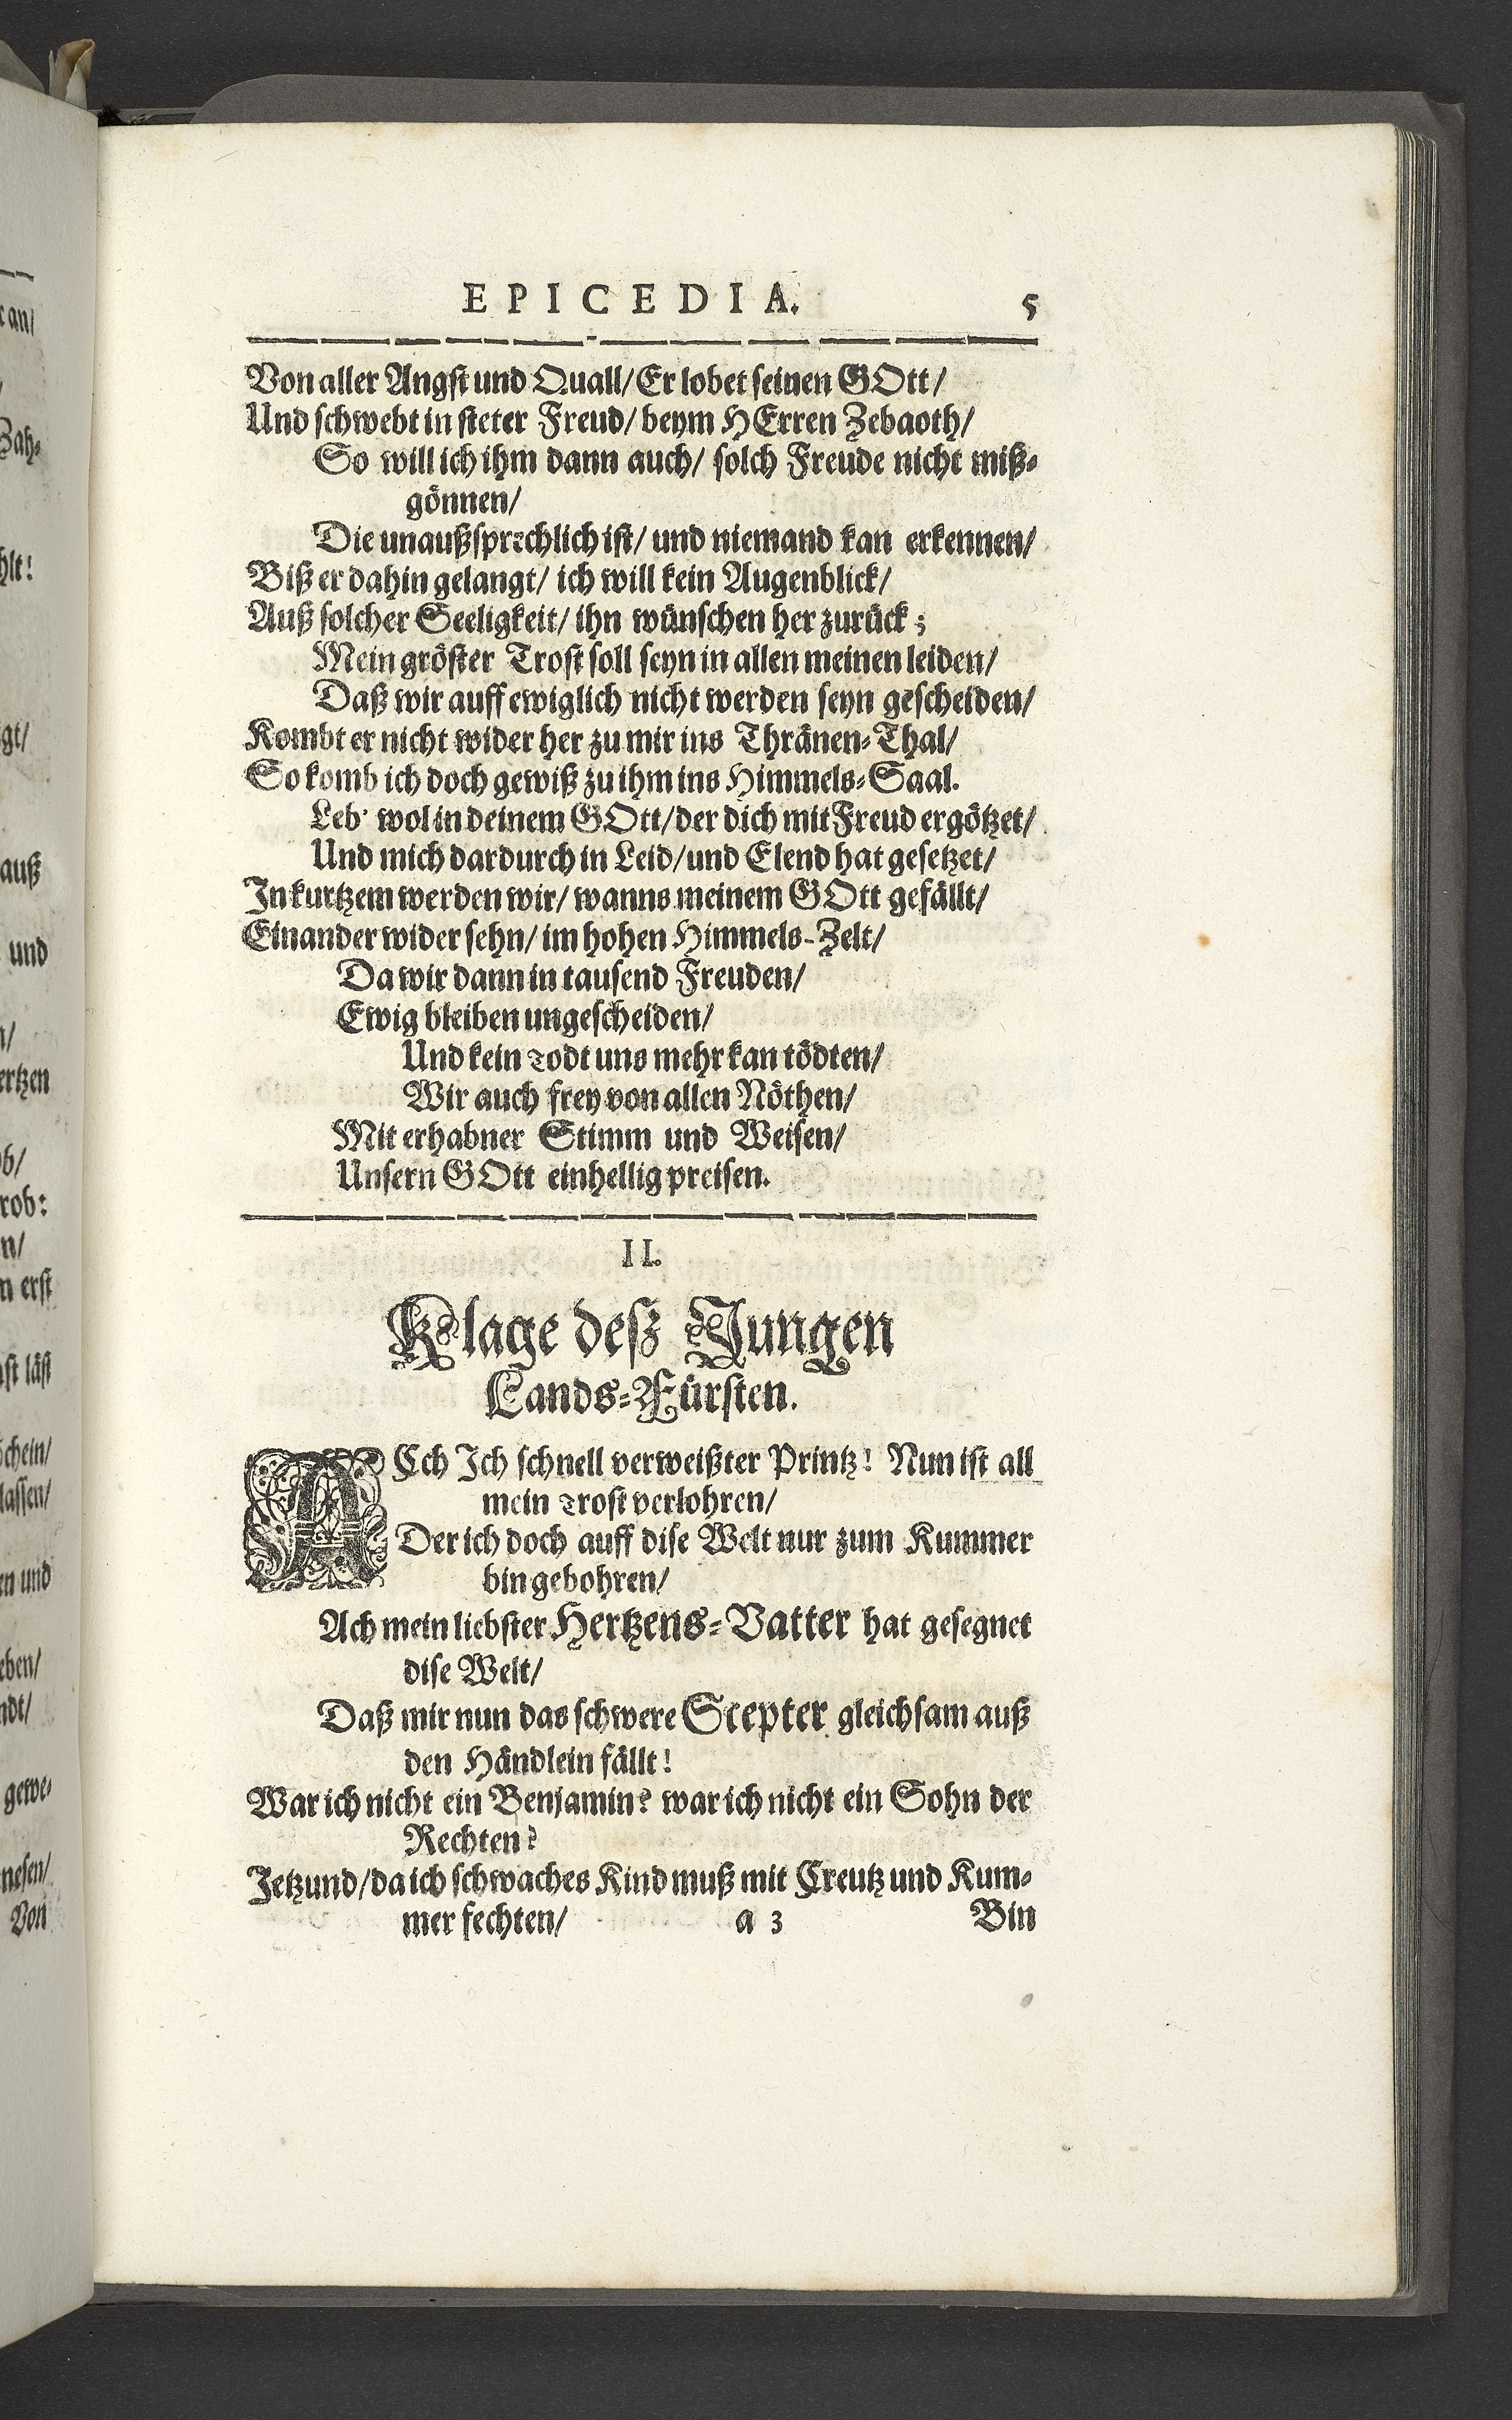 EPICEDIA. 5
Von aller Angst und Quall/ Er lobet seinen GOtt/
Und schwebt in steter Freud/ beym HErren Zebaoth/
So will ich ihm dann auch/ solch Freude nicht miß-
gönnen/
Die unaußsprechlich ist/ und niemand kan erkennen/
Biß er dahin gelangt/ ich will kein Augenblick/
Auß solcher Seeligkeit/ ihn wünschen her zurück;
Mein gröster Trost soll seyn in allen meinen leiden/
Daß wir auff ewiglich nicht werden seyn gescheiden/
Kombt er nicht wider her zu mir ins Thränen-Thal/
So komb ich doch gewiß zu ihm ins Himmels-Saal.
Leb' wol in deinem GOtt/ der dich mit Freud ergötzet/
Und mich dardurch in Leid/ und Elend hat gesetzet/
In kurtzem werden wir/ wanns meinem GOtt gefällt/
Einander wider sehn/ im hohen Himmels-Zelt/
Da wir dann in tausend Freuden/
Ewig bleiben ungescheiden/
Und kein Todt uns mehr kan tödten/
Wir auch frey von allen Nöthen/
Mit erhabner Stimm und Weisen/
Unsern GOtt einhellig preisen.
II.
Klage deß Jungen
Lands-Fürsten.
ACh Ich schnell verweißter Printz! Nun ist all
mein Trost verlohren/
Der ich doch auff dise Welt nur zum Kummer
bin gebohren/
Ach mein liebster Hertzens-Vatter hat gesegnet
dise Welt/
Daß mir nun das schwere Scepter gleichsam auß
den Händlein fällt!
War ich nicht ein Benjamin? war ich nicht ein Sohn der
Rechten?
Jetzund/ da ich schwaches Kind muß mit Creutz und Kum-
mer fechten/ a 3 Bin